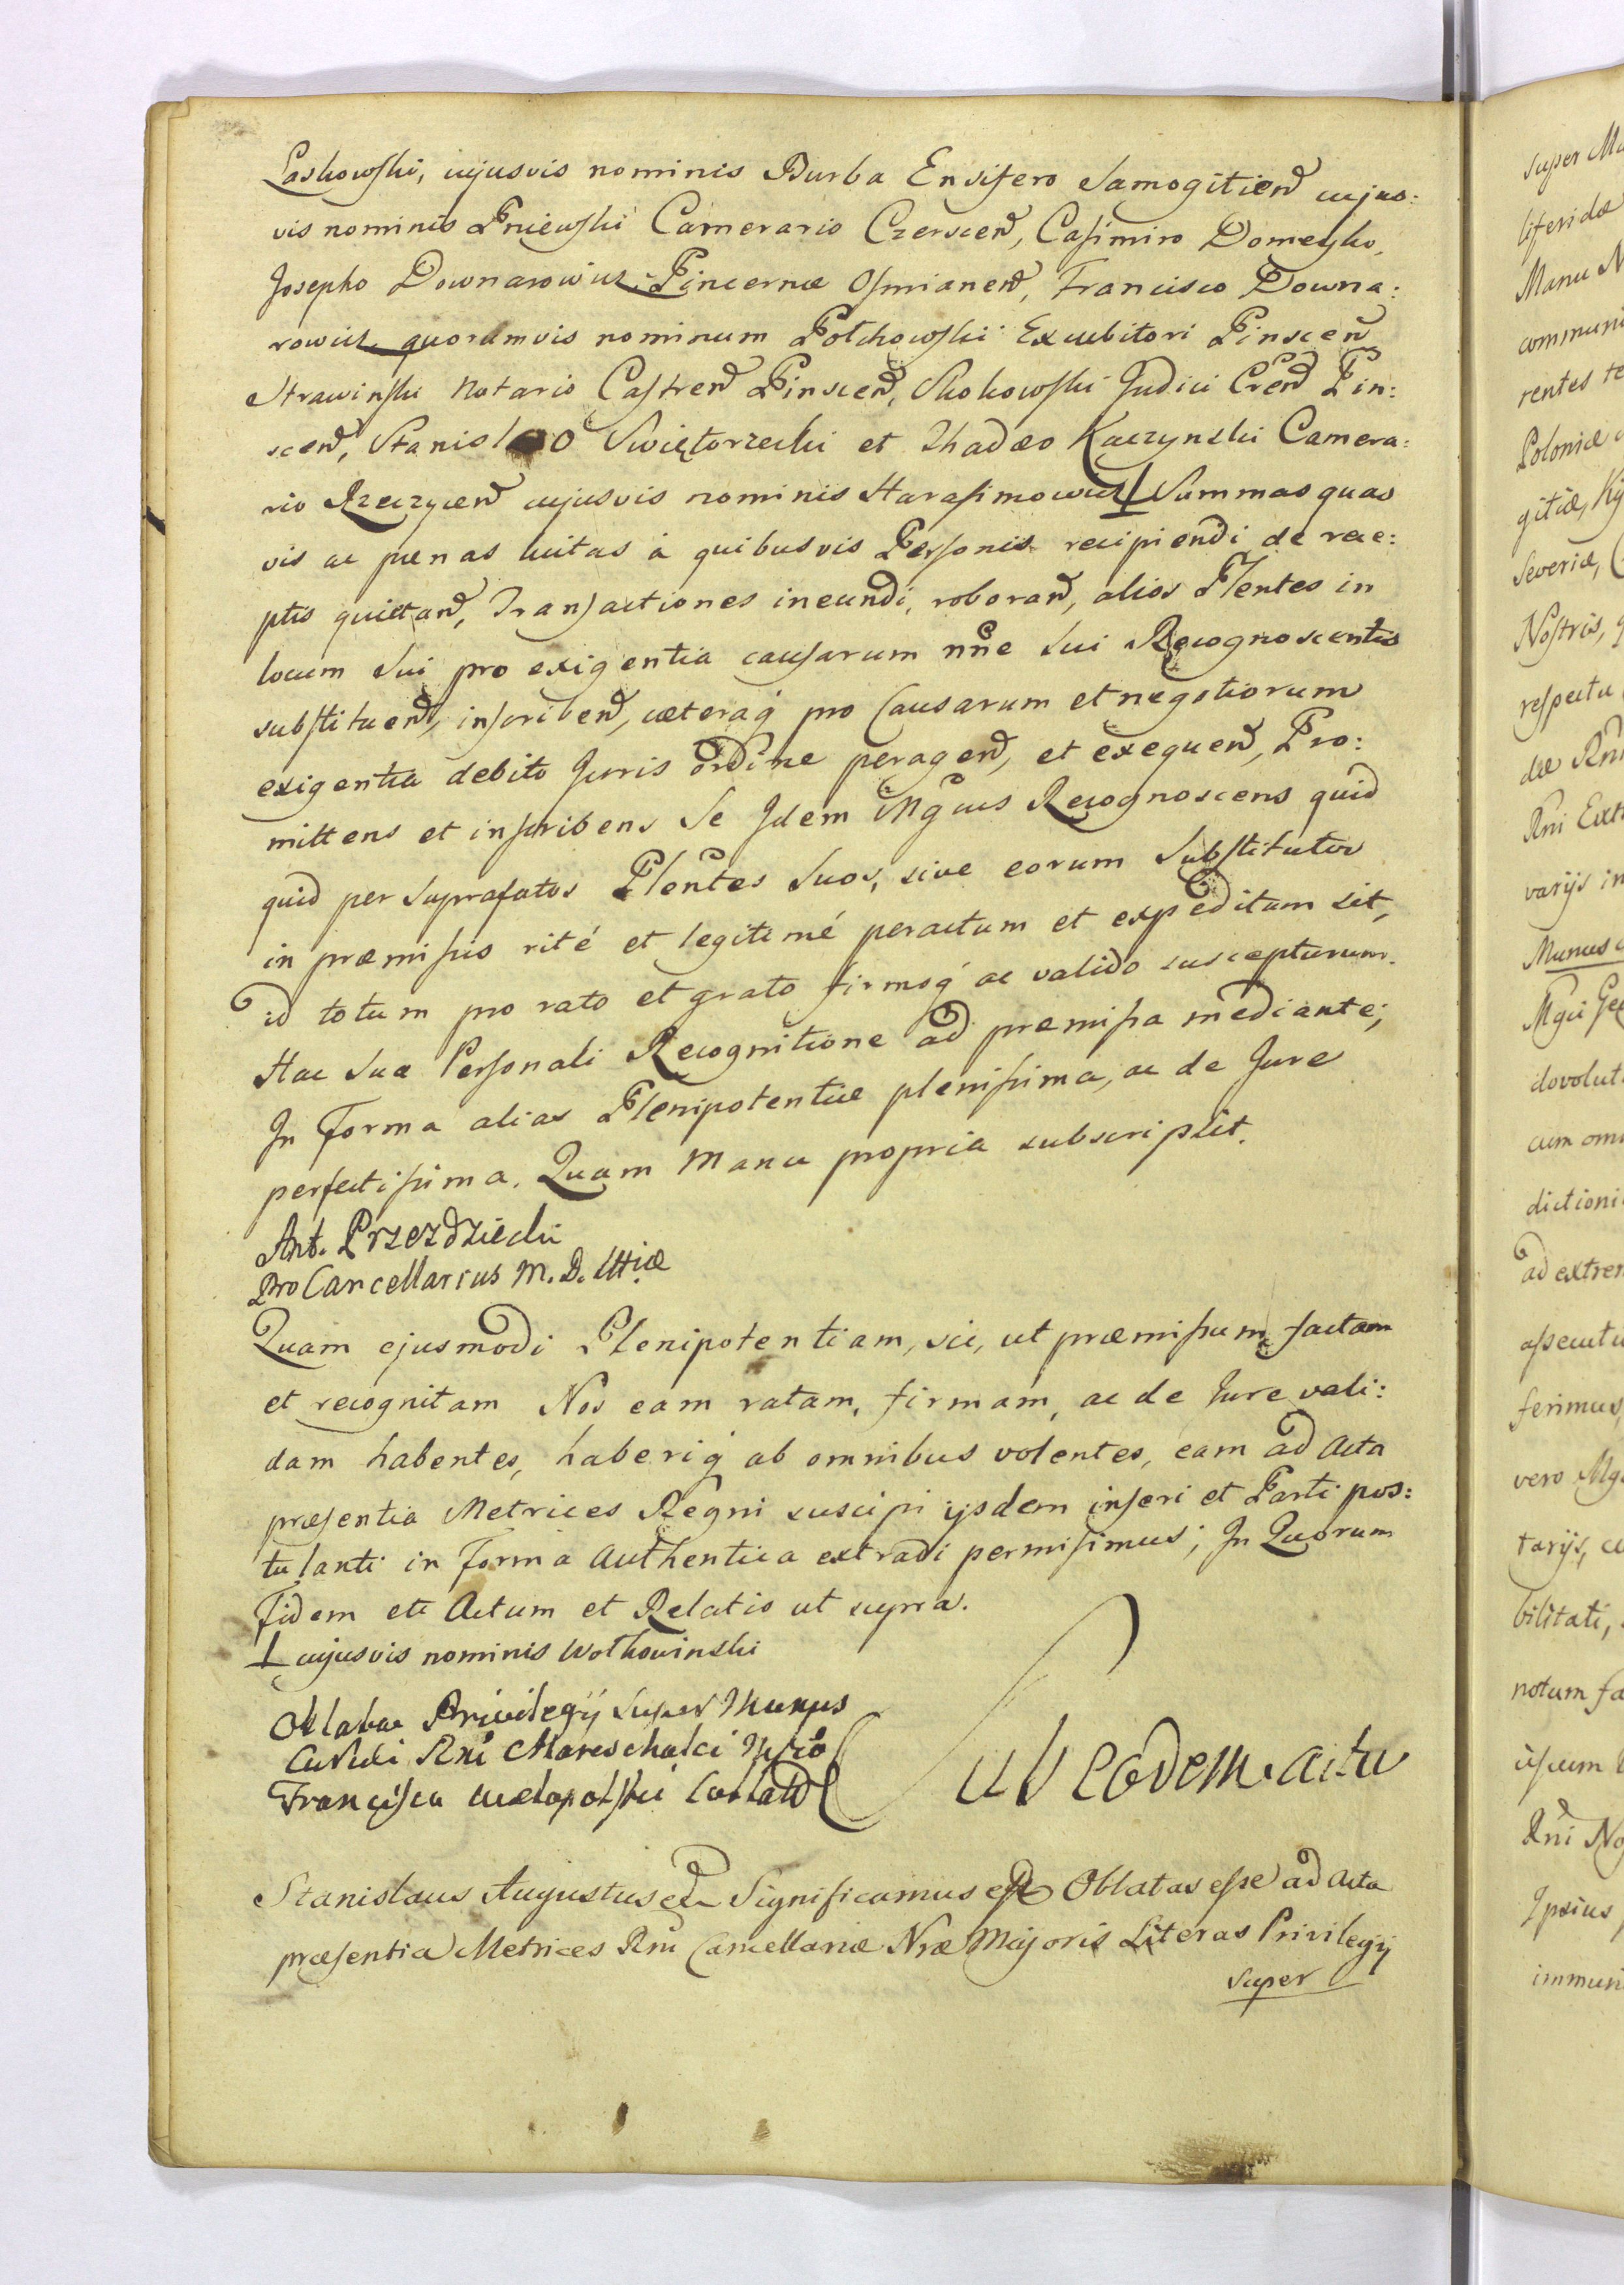 Laskowski, cujusvis nominis Burba Ensifero Samogitien̄ cujus:
vis nominis Pniewski Camerario Czerscen̄, Casimiro Domeyko,
Josepho Downarowicz Pincernæ Osmianen̄, Francisco Downa:
rowicz quorumvis nominum Połchowski Excubitori Pinscen̄
Strawinski Notario Castren̄ Pinscen̄, Skokowski Judici Cren̄ Pin:
scen̄, Stanislao Swiętorzecki et Thadæo Kaczynski Camera:
rio Rzeczycen̄ cujusvis nominis Harasimowicz Summas quas
vis ac pænas luitas à quibusvis Personis recipiendi de rece:
ptis quietan̄, Transactiones ineundi, roboran̄, alios Plentes in
locum Sui pro exigentia causarum nn̄e Sui Recognoscentis
substituen̄, inscriben̄, cæteraq́ pro Causarum et negotiorum
exigentia debito Juris ordine peragen̄, et exequen̄, Pro:
mittens et inscribens Se Idem Mgcus Recognoscens quid
quid per Suprafatos Plentes Suos, sive eorum Substitutos
in præmissis rité et legitimé peractum et expeditum sit,
id totum pro rato et grato firmoq́ ac valido suscepturum.
Hac Sua Personali Recognitione ad præmissa mediante;
In Forma alias Plenipotentiæ plenissima, ac de Jure
perfectissima. Quam Manu propria subscripsit.
Ant. Przezdziecki
ProCancellarius M. D. Littiæ
Quam ejusmodi Plenipotentiam, sic, ut præmissum factam
et recognitam Nos eam ratam, firmam, ac de Jure vali:
dam habentes, haberiq́ ab omnibus volentes, eam ad Acta
præsentia Metrices Regni suscipi ijsdem inseri et Parti pos:
tulanti in forma Authentica extradi permisimus; In Quorum
Fidem etc Actum et Relatio ut supra.
cujusvis nominis Wołkowinski
Oblatae Privilegij super Munus
Curiæ Rni Mareschalci Mfco
Francisco Wielopolski Collat
Sub eodem Actu
Stanislaus Augustus etc Significamus etc Oblatas esse ad Acta
præsentia Metrices Rni Cancellariæ Nræ Majoris Literas Privilegij
super